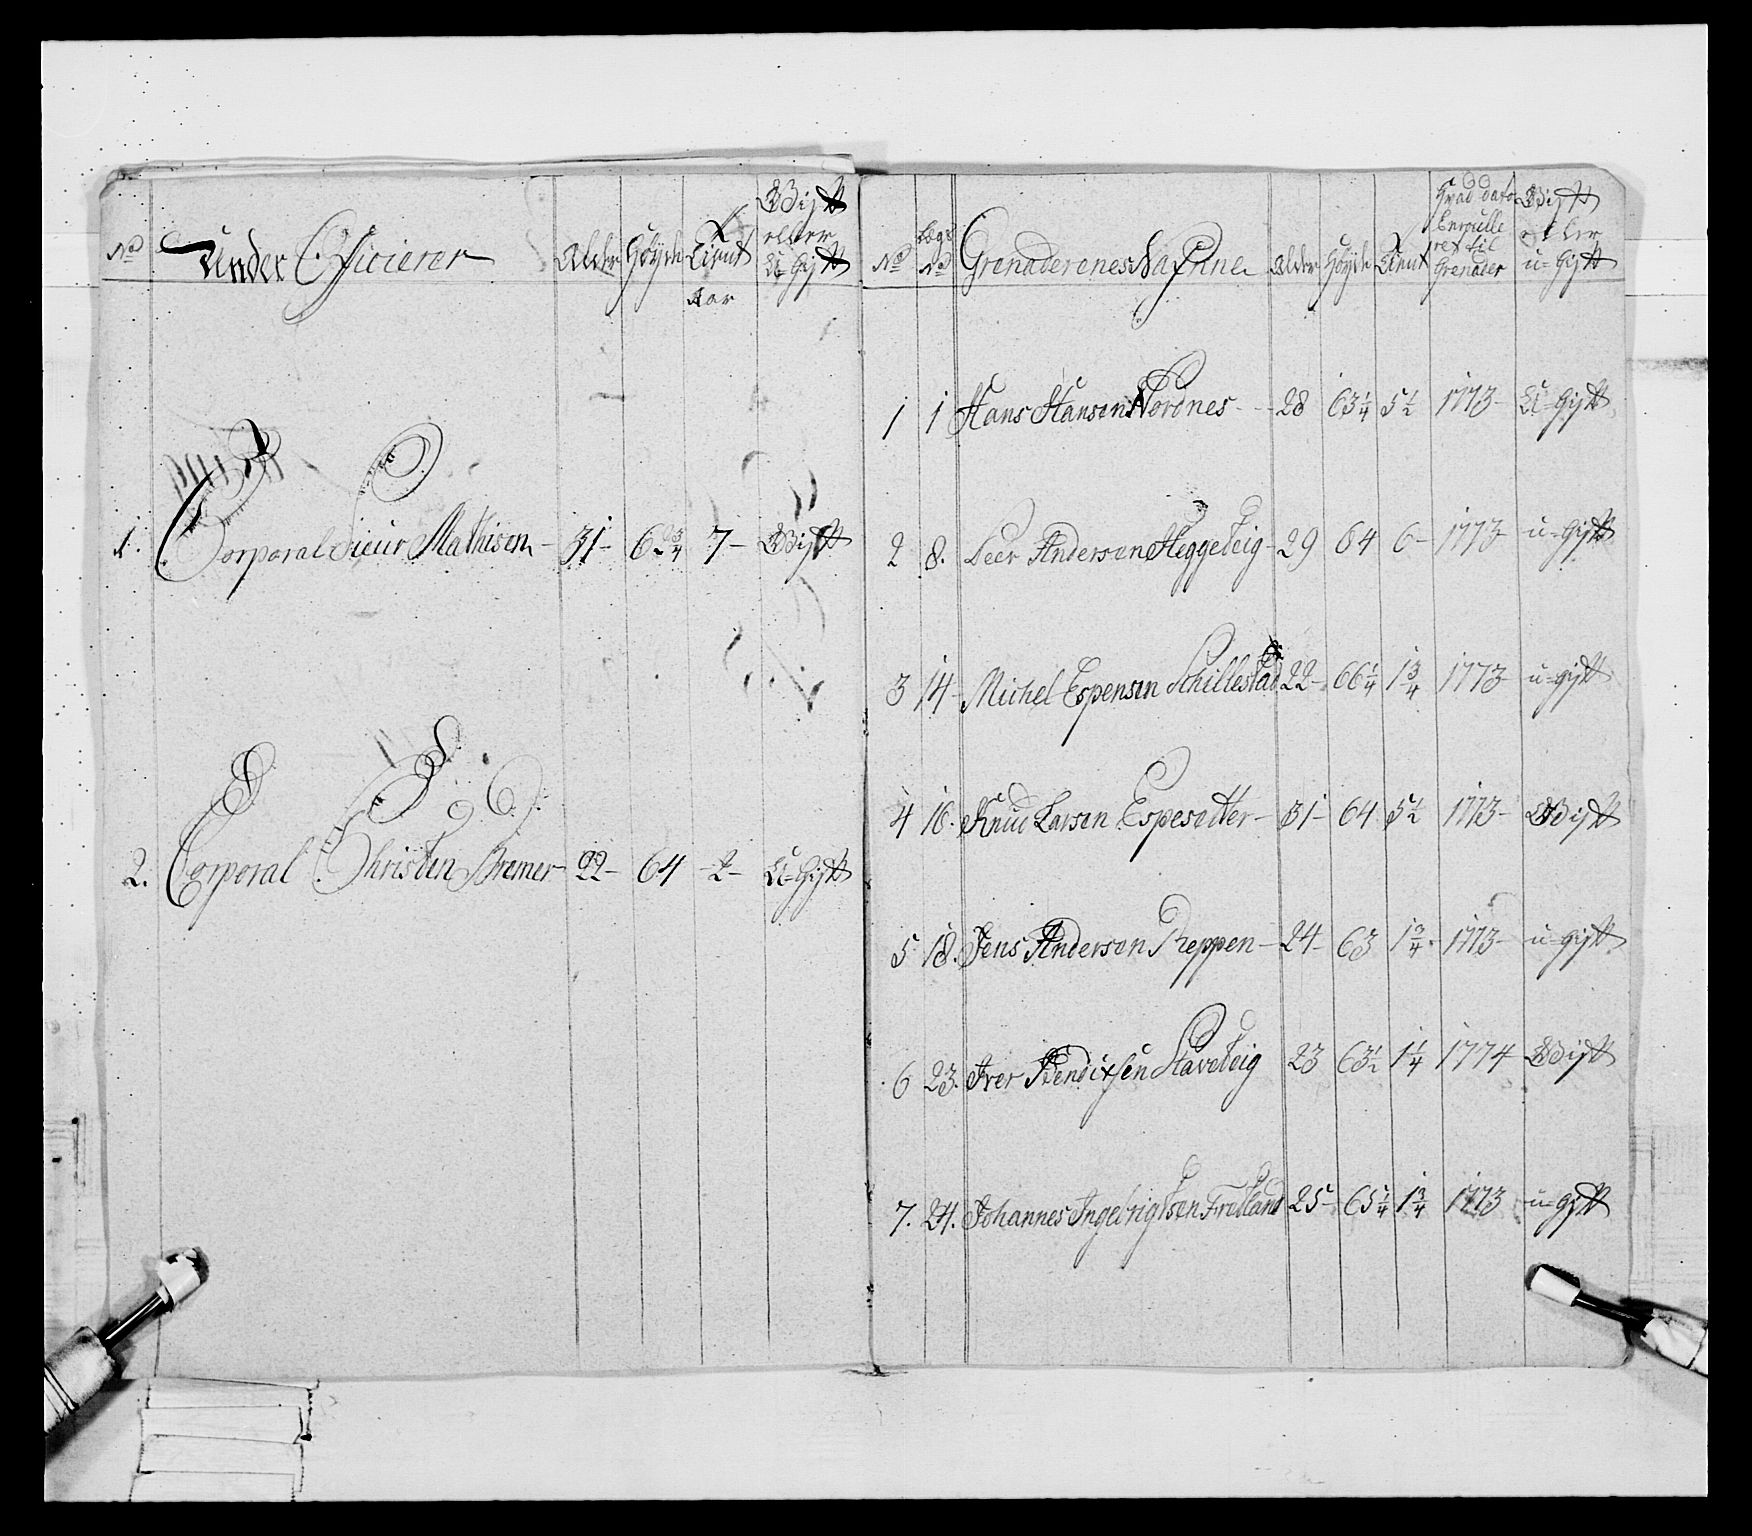 No Under Officierer Alder Höyde Tient Aar Gift eller U-Gift
1. Corporal Sieur Mathisen 31 62 3/4 7 Gift
2. Corporal Christen Bremer 22 64 2 U-Gift
No Legs No Grenaderenes Nafnne Alder Höyde Tient Hvad dato Enroulleret til Grenader Gift eller u-Gift
1 1 Hans Hansen Nordnes 28 63 1/4 5 1/2 1773 U-Gift
2 8. Peer Andersen Heggeteig 29 64 6 1773 u-Gift
3 14 Michel Espensen Schillestad 22 66 1/4 1 3/4 1773 u-gift
4 16. Knud Larsen Espesetter 31 64 5 1/2 1773 Gift
5 18. Jens Andersen Reppen 24 63 1 3/4 1773 u-gift
6 23. Iver Bendixsen Staveteig 23 63 1/2 1 1/4 1774 Gift
7. 24. Johannes Ingebrigtsen Fretland 25 65 1/4 1 3/4 1773 u-gift